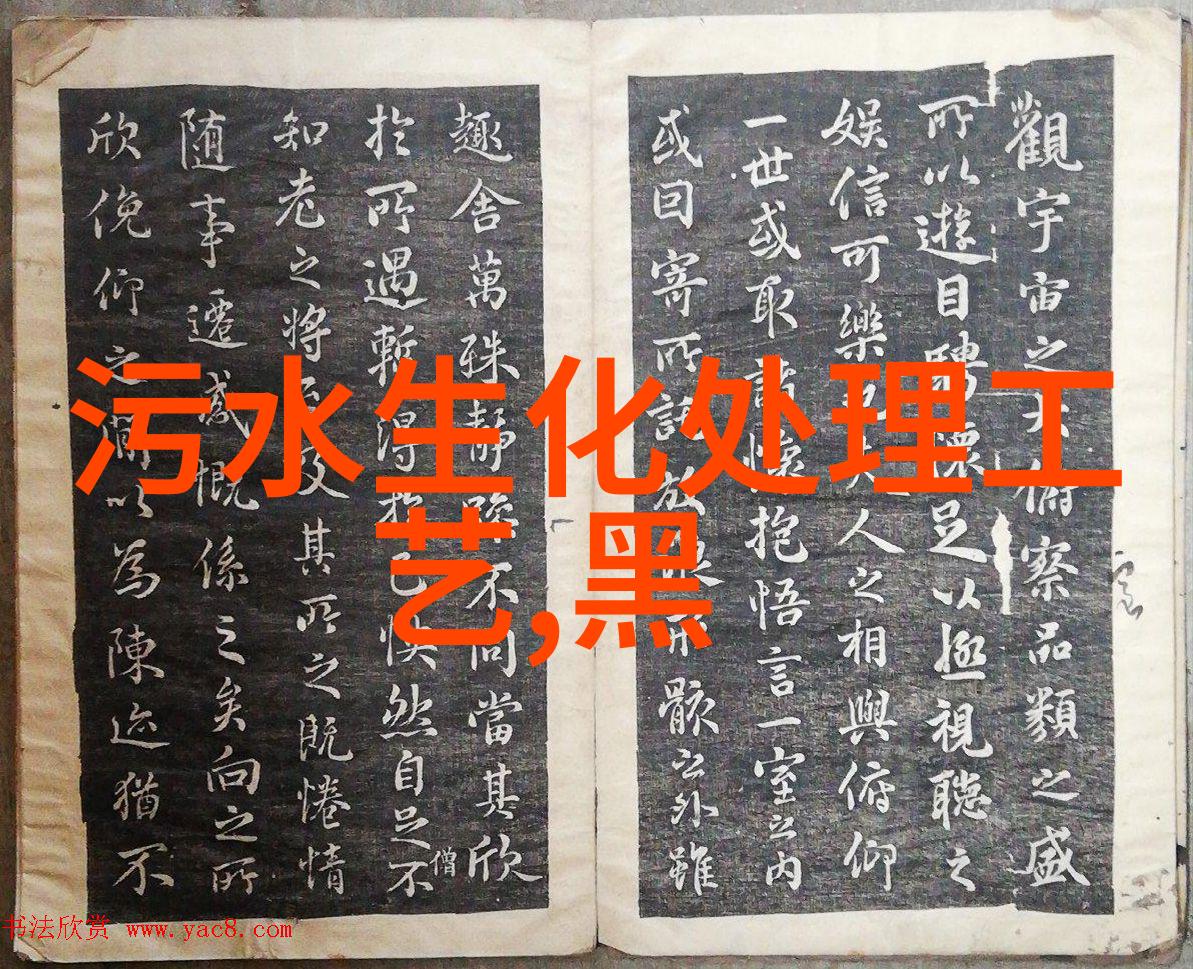 污水生化处理工
艺,黑
觀宇宙之大俯察品類之盛
所以遊目騁懷足以極視聽之
娛信可樂也夫人之相與俯仰
一世或取諸懷抱悟言一室之內
或因寄所託放浪形骸之外雖
趣舍萬殊靜躁不同當其欣
於所遇暫得於己快然自足不
僧
知老之將至及其所之既惓情
隨事遷感慨係之矣向之所
欣俛仰之間以為陳迹猶不
书法欣赏 www.yac8.com